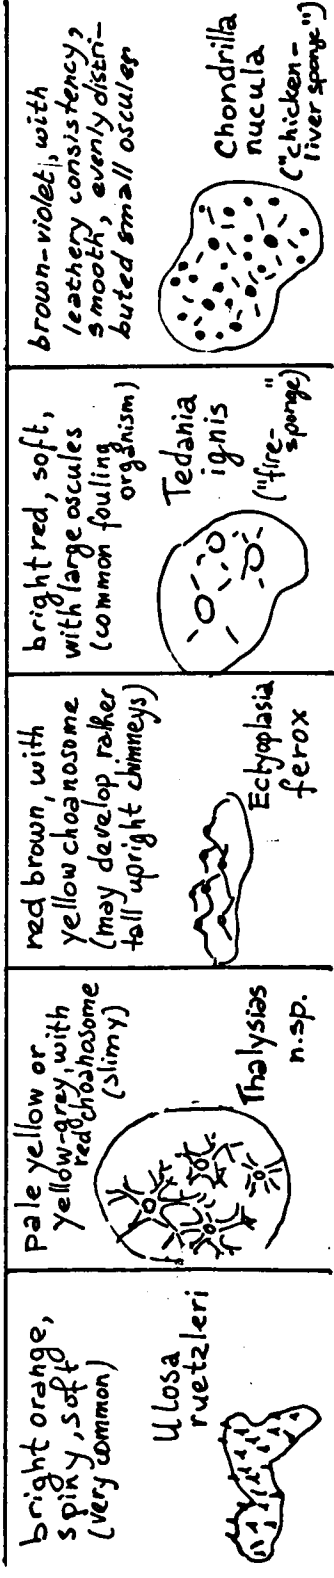 bright orange,
spiny, soft
(very common)
Ulosa
ruetzleri
pale yellow or
yellow-grey, with
red choanosome
(slimy)
Thalysias
n.sp.
red brown, with
yellow choanosome
(may develop rather
tall upright chimneys)
Ectyoplasia
ferox
bright red, soft,
with large oscules
(common fouling
organism)
Tedania
ignis
("fire-
sponge")
brown-violet, with
leathery consistency,
smooth, evenly distri-
buted small oscules
Chondrilla
nucula
("chicken-
liver sponge")